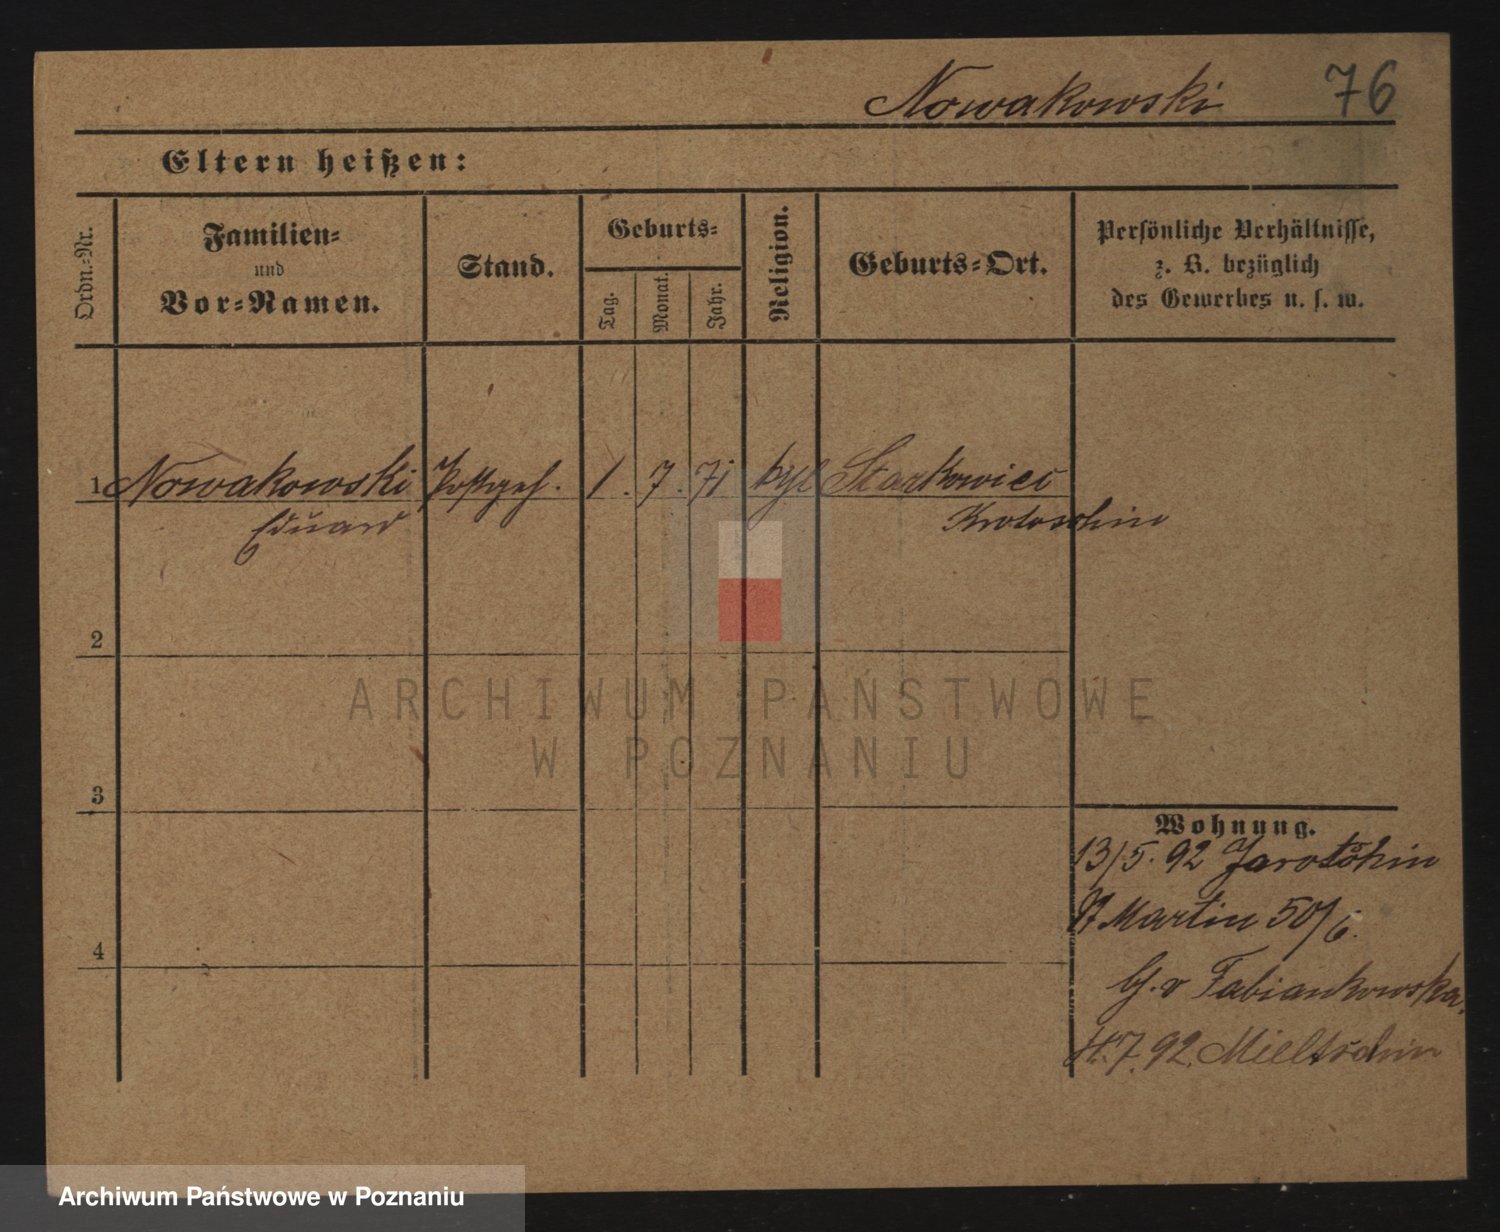 Nowakowski 76
Eltern heißen:
Ordn.-Nr.
Familien-
und
Vor-Namen.
Stand.
Geburts-
Tag.
Monat.
Jahr.
Religion.
Geburts-Ort.
Persönliche Verhältnisse,
z. B. bezüglich
des Gewerbes u. s. w.
1 Nowakowski Postgeh. 1. 7. 71 Starkowiec
Eduard Krotoschin
2
3
4
Wohnung.
13/5. 92 Jarotschin
St Martin 50/6.
b/. v Fabiankowska.
7. 92. Mieltschin
ARCHIWUM PAŃSTWOWE
W POZNANIU
Archiwum Państwowe w Poznaniu